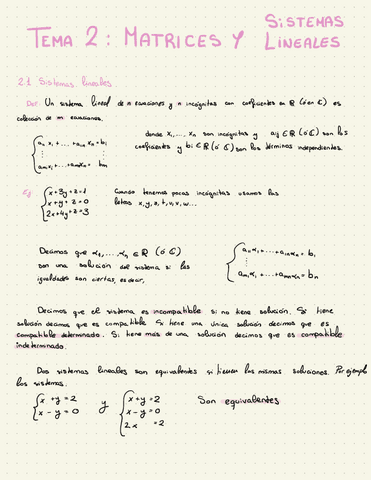 TEMA 2: MATRICES Y SISTEMAS LINEALES
2.1 Sistemas lineales
Def: Un sistema lineal de n ecuaciones y n incógnitas con coeficientes en ℝ (ó en ℂ) es
colección de m ecuaciones.
a₁₁x₁+...+a₁ₙxₙ=b₁
⋮
aₘ₁x₁+...+aₘₙxₙ=bₘ
donde x₁,...,xₙ son incógnitas y aᵢⱼ∈ℝ (ó ℂ) son los
coeficientes y bᵢ∈ℝ (ó ℂ) son los términos independientes.
Eg:
x+3y+z=1
x+y+z=0
2x+4y+z=3
Cuando tenemos pocas incógnitas usamos las
letras x,y,z,t,u,v,w...
Decimos que α₁,...,αₙ∈ℝ (ó ℂ)
son una solución del sistema si las
igualdades son ciertas, es decir,
a₁₁α₁+...+a₁ₙαₙ=b₁
⋮
aₘ₁α₁+...+aₘₙαₙ=bₘ
Decimos que el sistema es incompatible si no tiene solución. Si tiene
solución decimos que es compatible. Si tiene una única solución decimos que es
compatible determinado. Si tiene más de una solución decimos que es compatible
indeterminado.
Dos sistemas lineales son equivalentes si tienen las mismas soluciones. Por ejemplo
los sistemas.
x+y=2
x-y=0
y
x+y=2
x-y=0
2x =2
Son equivalentes